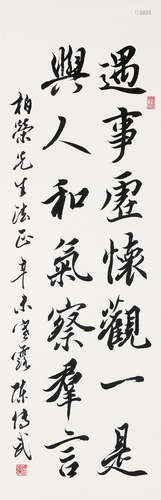 遇事虛懷觀一是
與人和氣察羣言
柏榮先生法正辛未寒露陳傅武